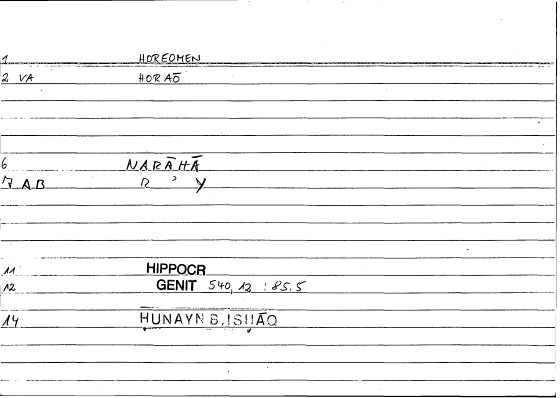 1 HOREOMEN
2 VA HORAŌ
6 NARĀHĀ
7 AB R ʾ Y
11 HIPPOCR
12 GENIT 540,12 : 85.5
14 ḤUNAYN B. ISḤĀQ